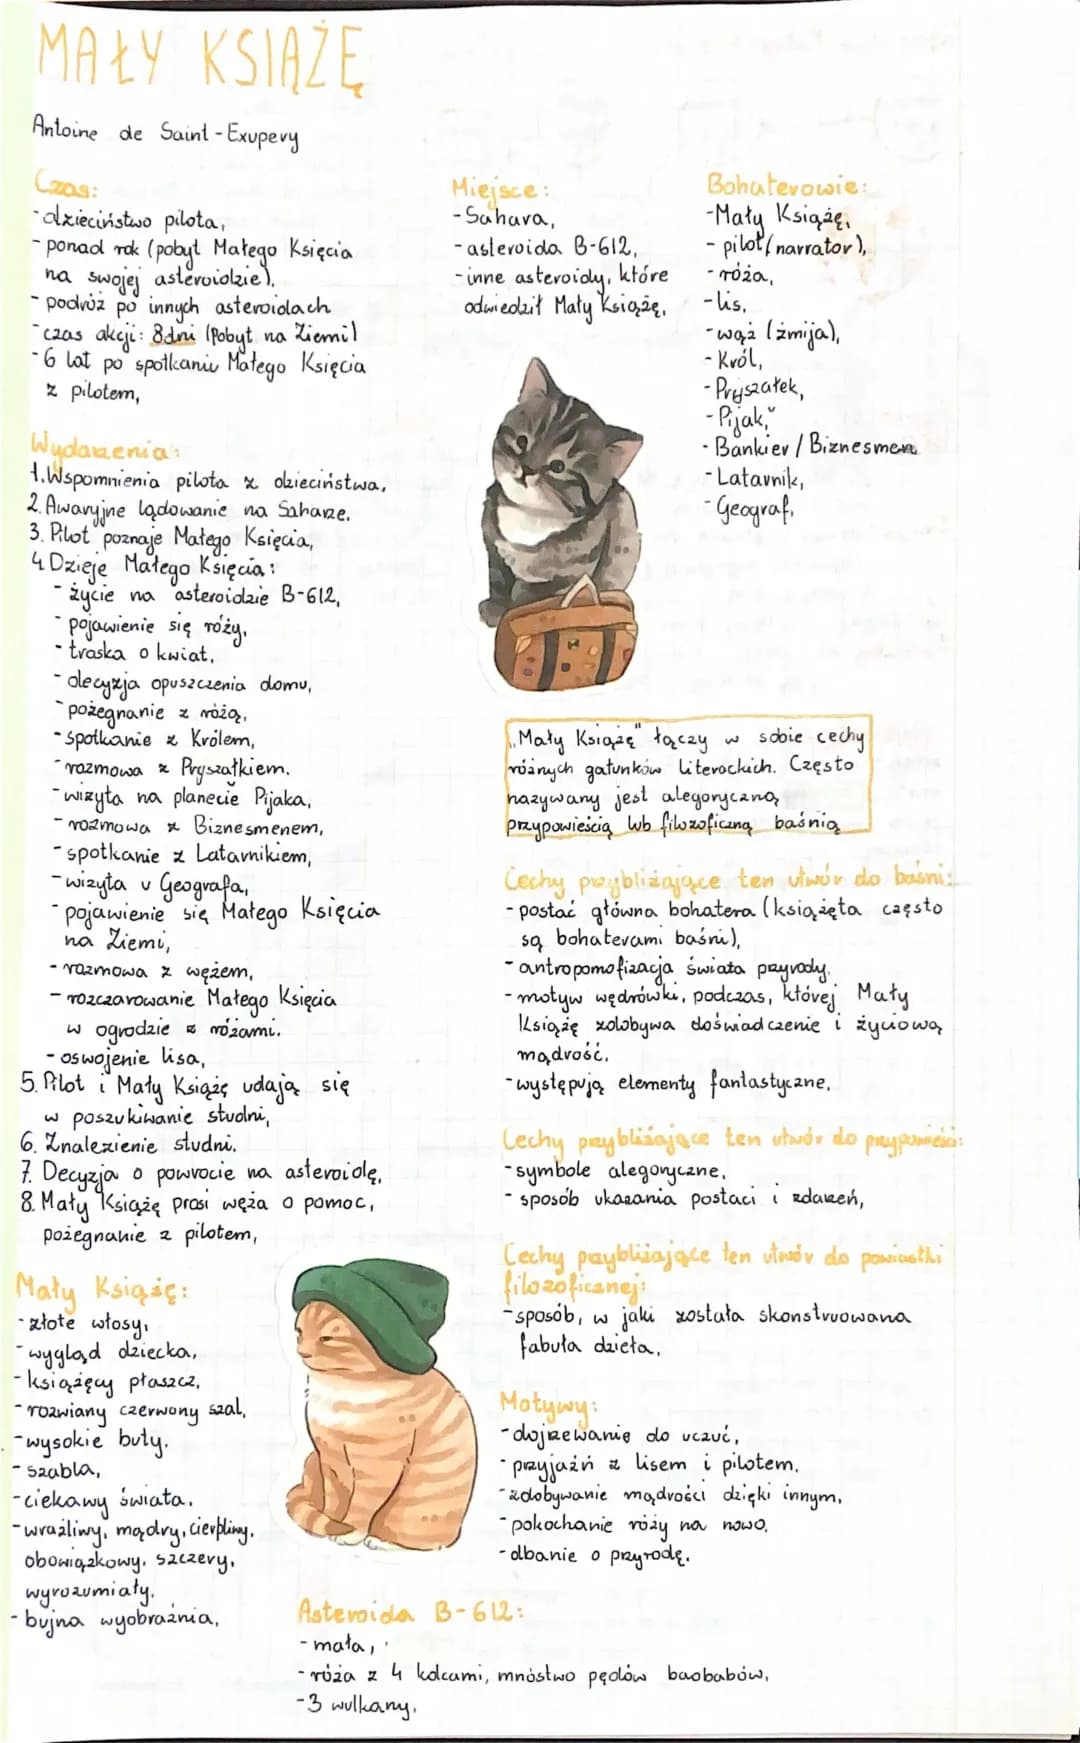 MAŁY KSIĄŻĘ
Antoine de Saint-Exupery
Czas:
- dzieciństwo pilota,
- ponad rok (pobyt Małego Księcia
na swojej asteroidzie),
- podróż po innych asteroidach
- czas akcji: 8 dni (Pobyt na Ziemi)
- 6 lat po spotkaniu Małego Księcia
z pilotem,
Wydarzenia:
1. Wspomnienia pilota z dzieciństwa,
2. Awaryjne lądowanie na Saharze.
3. Pilot poznaje Małego Księcia,
4 Dzieje Małego Księcia:
- życie na asteroidzie B-612,
- pojawienie się róży,
- troska o kwiat,
- decyzja opuszczenia domu,
- pożegnanie z różą,
- spotkanie z Królem,
- rozmowa z Pryszałkiem.
- wizyta na planecie Pijaka,
- rozmowa z Biznesmenem,
- spotkanie z Latarnikiem,
- wizyta u Geografa,
- pojawienie się Małego Księcia
na Ziemi,
- rozmowa z wężem,
- rozczarowanie Małego Księcia
w ogrodzie z różami.
- oswojenie lisa,
5. Pilot i Mały Książę udają się
w poszukiwanie studni,
6. Znalezienie studni.
7. Decyzja o powrocie na asteroidę,
8. Mały Książę prosi węża o pomoc,
pożegnanie z pilotem,
Mały Książę:
- złote włosy,
- wygląd dziecka,
- książęcy płaszcz,
- rozwiany czerwony szal,
- wysokie buty.
- szabla,
- ciekawy świata,
- wrażliwy, mądry, cierpliwy,
obowiązkowy, szczery,
wyrozumiały,
- bujna wyobraźnia,
Miejsce:
- Sahara,
- asteroida B-612,
- inne asteroidy, które
odwiedził Mały Książę,
Bohaterowie:
- Mały Książę,
- pilot (narrator),
- róża,
- lis,
- wąż (żmija),
- Król,
- Pryszałek,
- Pijak,
- Bankier / Biznesmen
- Latarnik,
- Geograf,
"Mały Książę" łączy w sobie cechy
różnych gatunków literackich. Często
nazywany jest alegoryczną
przypowieścią lub filozoficzną baśnią
Cechy przybliżające ten utwór do baśni:
- postać główna bohatera (książęta często
są bohaterami baśni),
- antropomofizacja świata przyrody,
- motyw wędrówki, podczas, której Mały
Książę zdobywa doświadczenie i życiową
mądrość,
- występują elementy fantastyczne,
Cechy przybliżające ten utwór do przypowieści:
- symbole alegoryczne,
- sposób ukazania postaci i zdarzeń,
Cechy przybliżające ten utwór do powiastki
filozoficznej:
- sposób, w jaki została skonstruowana
fabuła dzieła,
Motywy:
- dojrzewanie do uczuć,
- przyjaźń z lisem i pilotem,
- zdobywanie mądrości dzięki innym,
- pokochanie róży na nowo,
- dbanie o przyrodę,
Asteroida B-612:
- mała,
- róża z 4 kolcami, mnóstwo pędów baobabów,
- 3 wulkany,